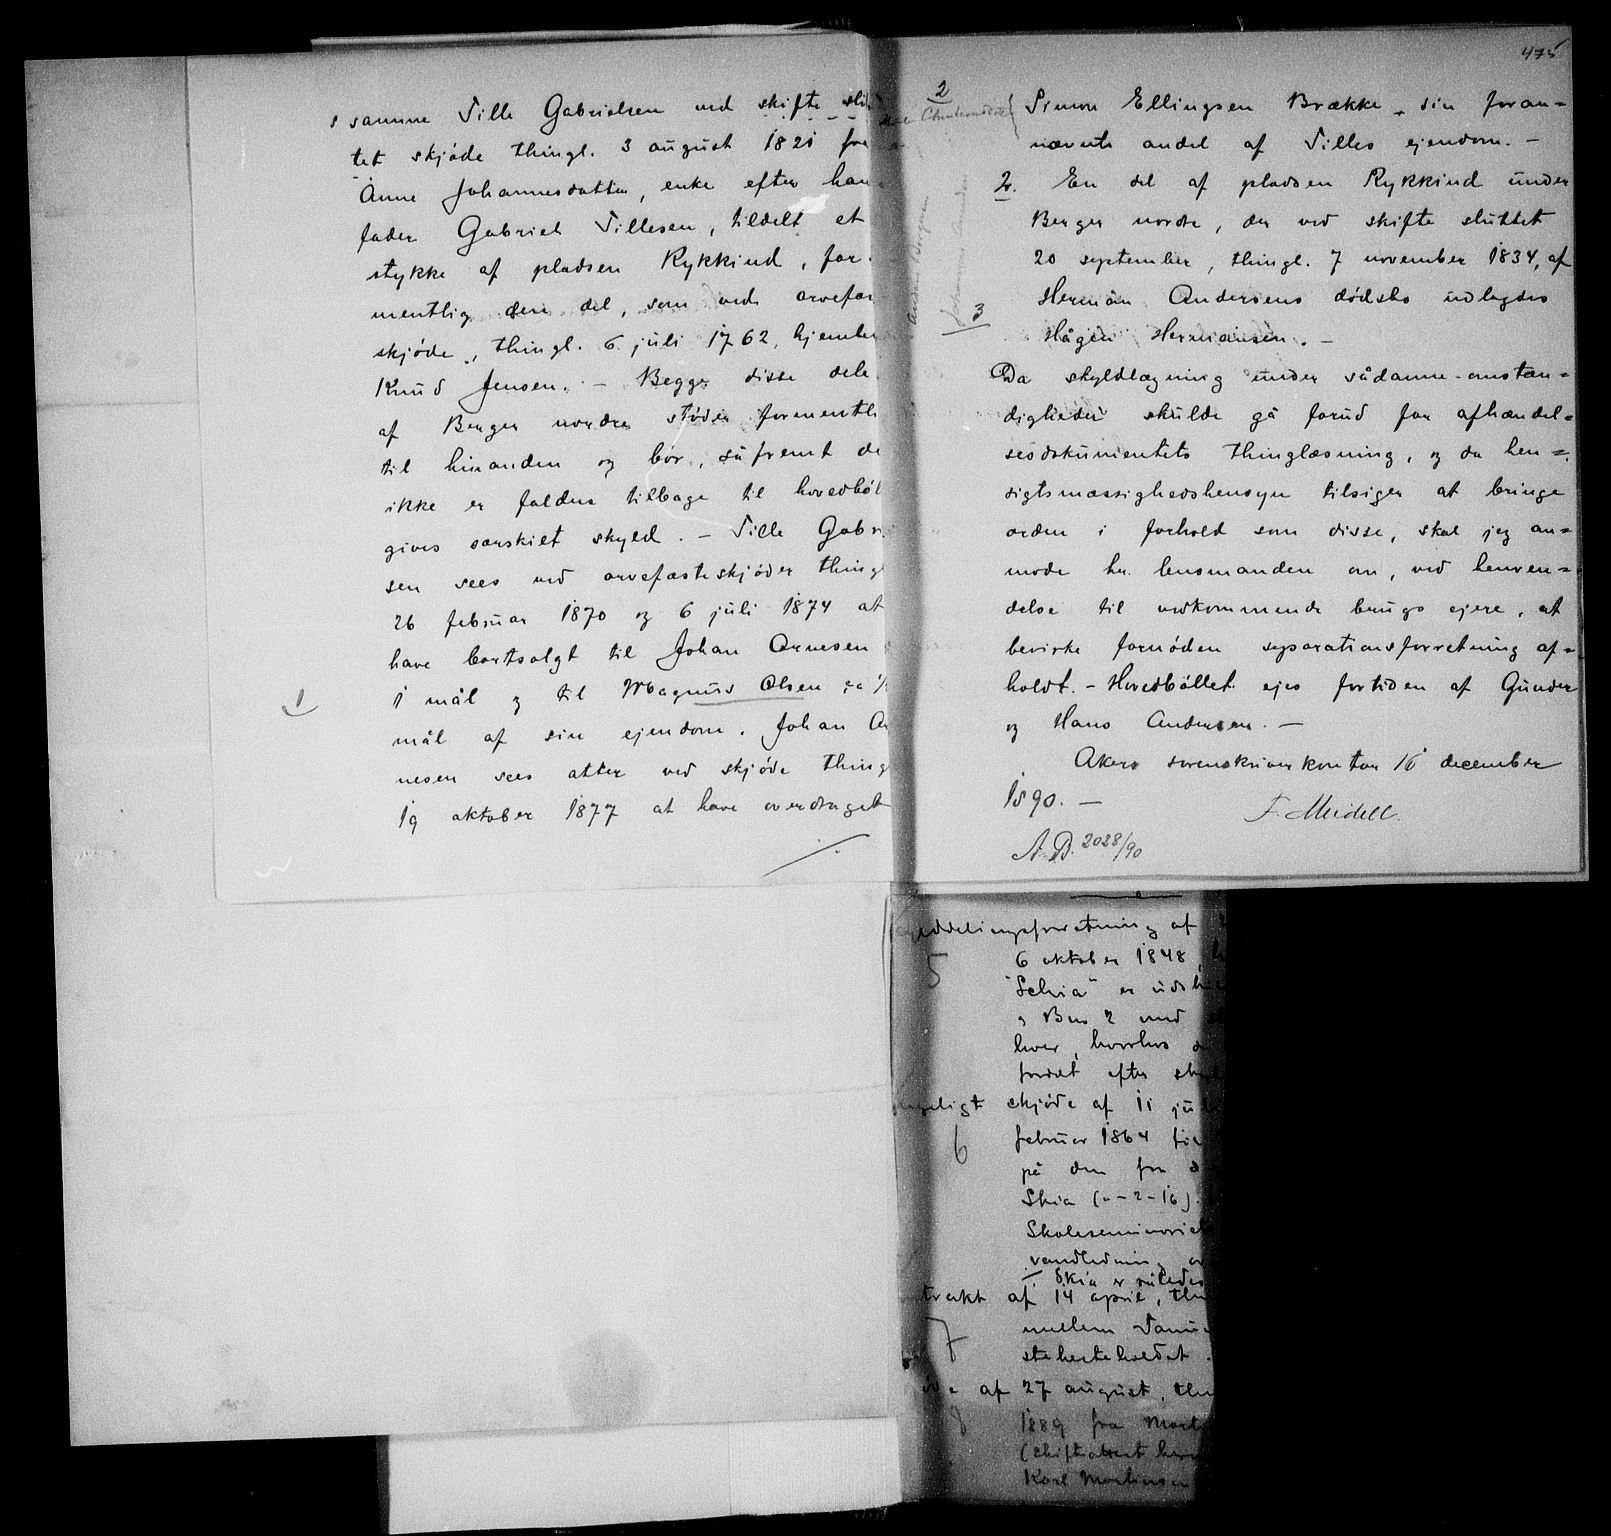 samme Tille Gabrielsen ved skifte slut
tet skjøde thingl. 3 august 1821 fra
Anne Johannesdatter, enke efter han
fader Gabriel Tillesen, tildelt et
stykke af pladsen Rykkind, for
mentlig den del, som ved arvefæ
skjøde, thingl. 6 juli 1762, hjemle
Knud Jensen. – Begge disse dele
af Berger nordre støder formentli
til hinanden og bør, såfremt de
ikke er faldne tilbage til hovedbøl
gives særskilt skyld. – Tille Gabri
sen sees ved arvefæsteskjøder thingl
26 februar 1870 og 6 juli 1874 at
have bortsolgt til Johan Arnesen
1 mål og til Magnus Olsen ca ½
1
mål af sin ejendom. Johan Ar
nesen sees atter ved skjøde thing
19 oktober 1877 at have overdraget
./.
475
2
Simon Ellingsen Brække sin foran=
nævnte andel af Tilles ejendom. –
2. En del af pladsen Rykkind under
Berger nordre, der ved skifte sluttet
20 september, thingl. 7 november 1834, af
Herman Andersens dødsbo udlagdes
3
Hågen Hermansen. –
Da skyldlægning under sådanne omstæn=
digheder skulde gå forud for afhændel=
sesdokumentets thinglæsning, og da hen=
sigtsmæssighedshensyn tilsiger at bringe
orden i forhold som disse, skal jeg an=
mode hr. lensmanden om, ved henven=
delse til vedkommende brugs ejere, at
bevirke fornøden separationsforretning af=
holdt. – Hovedbøllet ejes fortiden af Gunder
og Hans Andersen. –
Akers sorenskriverkontor 16 december
1890. –
F. Meidell.
A. B. 2028/90
delingsforretning af
5
6 oktober 1848,
"Schia" er uds
og Bns 2 med
hver, hvorhos
fordelt efter sk
skjøde af 11 ju
6
februar 1864
på den fra
Skia (0-2-16).
Skoleseminariet
vandledning
Skia er således
trakt af 14 april, thi
mellem
7
af 27 august, thi
8
1889 fra Mart
(skifteattest
Karl Martinsen